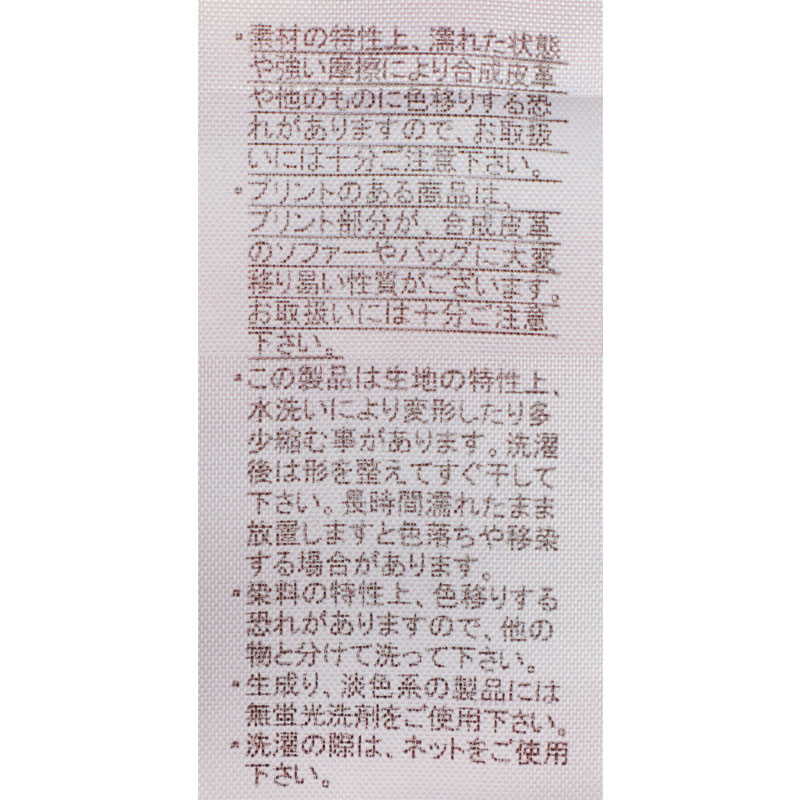 ・素材の特性上、濡れた状態
や強い摩擦により合成皮革
や他のものに色移りする恐
れがありますので、お取扱
いには十分ご注意下さい。
・プリントのある商品は、
プリント部分が、合成皮革
のソファーやバッグに大変
移り易い性質がございます。
お取扱いには十分ご注意
下さい。
・この製品は生地の特性上、
水洗いにより変形したり多
少縮む事があります。洗濯
後は形を整えてすぐ干して
下さい。長時間濡れたまま
放置しますと色落ちや移染
する場合があります。
・染料の特性上、色移りする
恐れがありますので、他の
物と分けて洗って下さい。
・生成り、淡色系の製品には
無蛍光洗剤をご使用下さい。
・洗濯の際は、ネットをご使用
下さい。